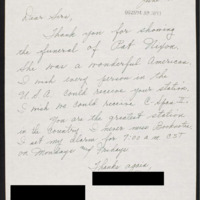 Dear Sirs,
Thank you for showing
the funeral of Pat Nixon.
She was a wonderful American.
I wish every person in the
U.S.A. could receive your station.
I wish we could receive C Span II.
You are the greatest station
in the Country. I never miss
I set my alarm for 7:00 a.m. CST
on Mondays Fridays
Thanks again,